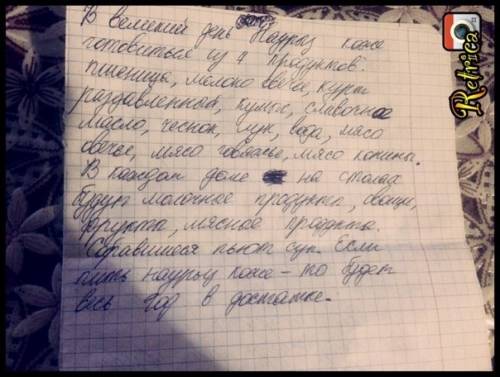 В великий день Наурыз коже
готовиться из 7 продуктов:
пшеница, молоко овечье, курт
раздавленный, кумыс, сливочное
масло, чеснок, лук, вода, мясо
овечье, мясо говяжье, мясо конины.
В каждом доме на столах
будут молочное продукты, овощи,
фрукты, мясное продукты.
Собравшиеся пьют суп. Если
пить наурыз коже - то будет
весь год в достатке.
Retrica